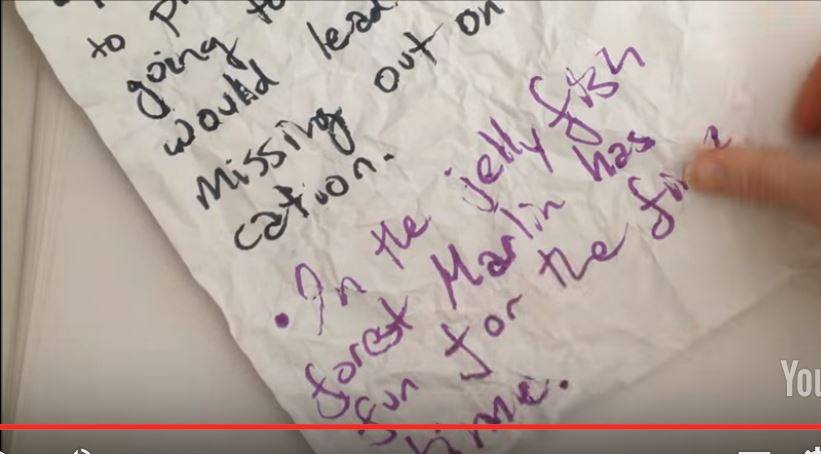 to
going to
would lead
missing out on
cation.
• In the jelly fish
forest Marlin has
fun for the
time.
You